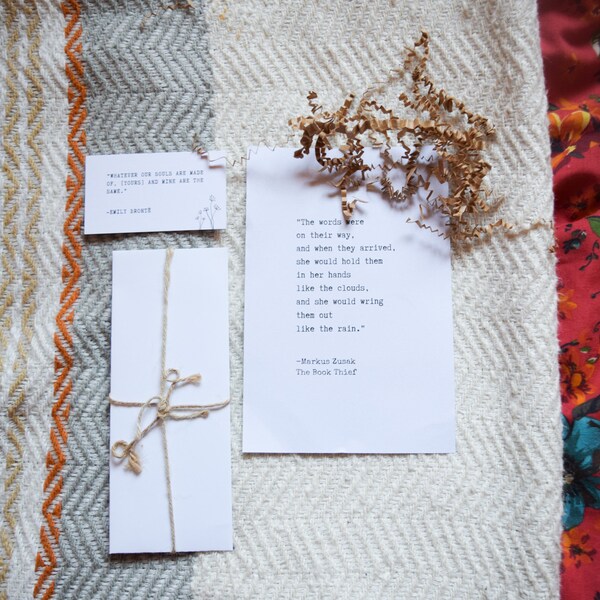 "WHATEVER OUR SOULS ARE MADE
OF, [YOURS] AND MINE ARE THE
SAME."
-EMILY BRONTË
"The words were
on their way,
and when they arrived,
she would hold them
in her hands
like the clouds,
and she would wring
them out
like the rain."
-Markus Zusak
The Book Thief